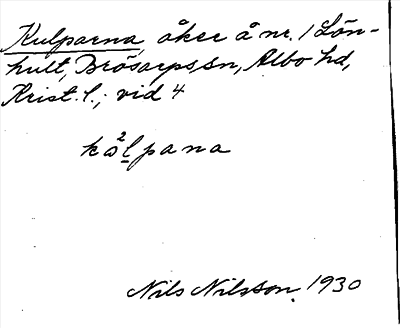 Kulparna, åker å nr. 1 Lön-
hult, Brösarps sn, Albo hd,
Krist. l.; vid 4
kω²l̲pana
Nils Nilsson. 1930